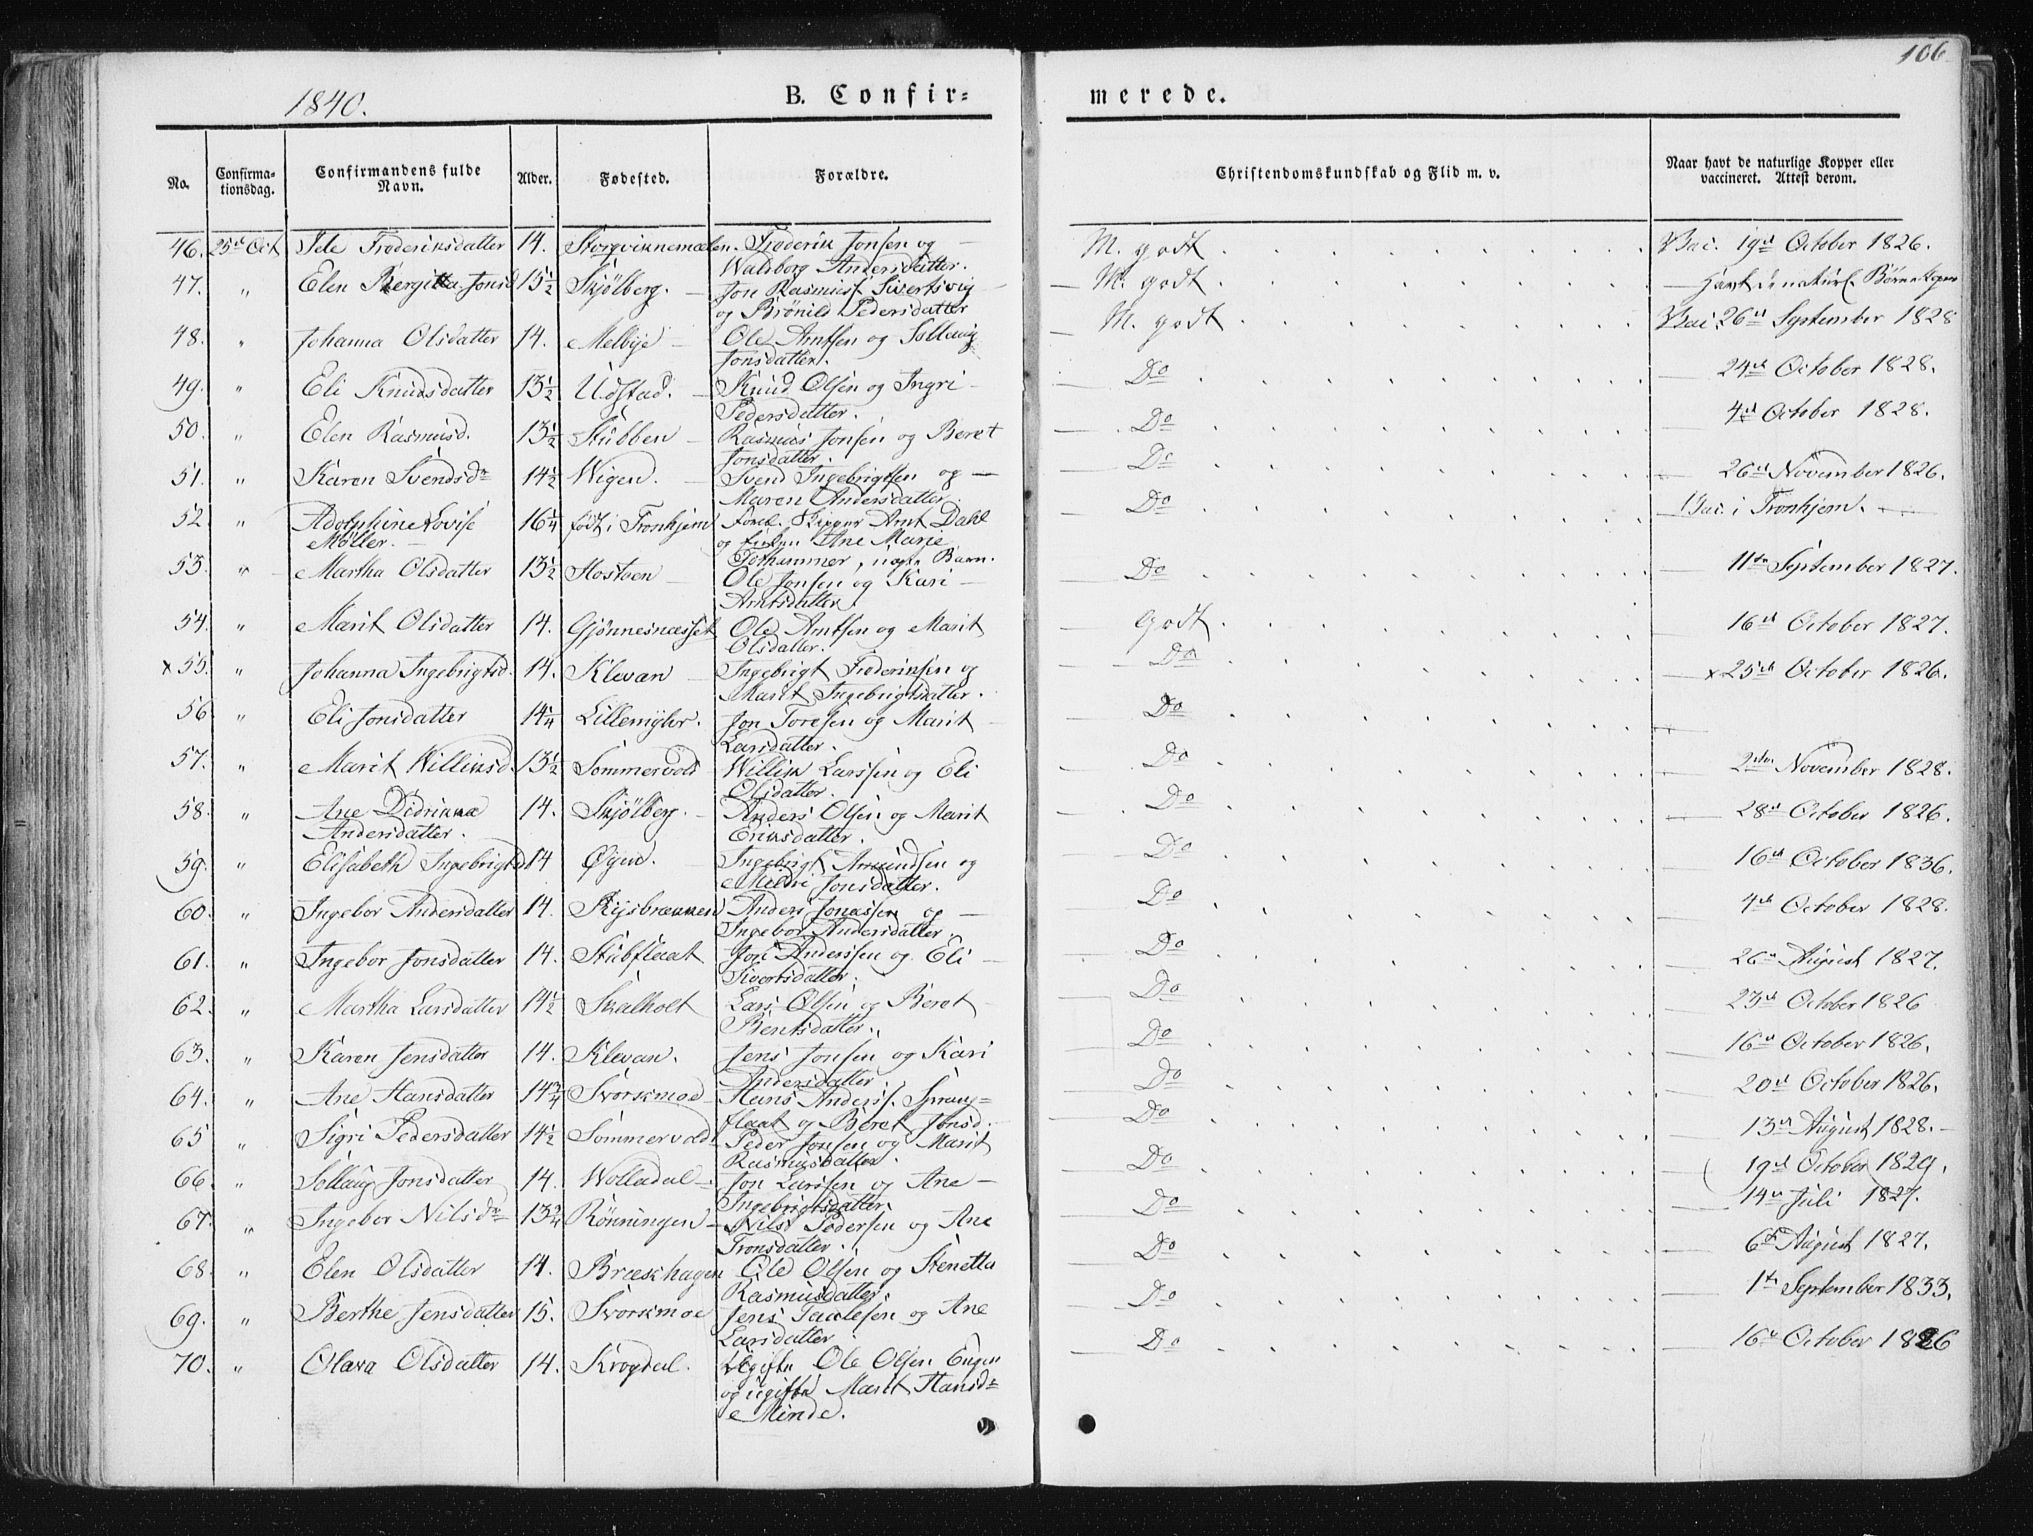 106
1840.
B. Confir=
merede.
No.
Confirma-
tionsdag.
Confirmandens fulde
Navn.
Alder.
Fødested.
Forældre.
Christendomskundskab og Flid m. v.
Naar havt de naturlige Kopper eller
vaccineret. Attest derom.
46. 25de Oct Frederiksdatter 14. Frederik Jonsen og M. godt Vac. 19de October 1826.
Waldborg Andersdatter.
47. " Elen Bergitta Jonsd 15½ Skjølberg. Jon Rasmus. Sivertsvig M. godt
og Brønild Pedersdatter
48. " Johanna Olsdatter 14. Melbye Ole Arntsen og Sollaug M. godt Vac. 26de September 1828
Jonsdatter.
49. " Eli Knudsdatter 13½ Udstad. Knud Olsen og Ingri Do 24de October 1828.
Pedersdatter.
50. " Elen Rasmusd. 13½ Stubben Rasmus Jonsen og Beret Do 4de October 1828.
Jonsdatter.
51. " Karen Svendsdr 14½ Wigen. Svend Ingebrigtsen og Do 26de November 1826.
Maren Andersdatter.
52 " Adolphine Lovise 16¼ født i Tronhjem Skipper Arnt Dahl Do Vac. i Tronhjem.
Møller. og Ane Marie
53. " Martha Olsdatter 13½ Hostoen Ole Jonsen og Kari Do 11te September 1827.
Arntsdatter.
54. " Marit Olsdatter 14. Gjønnesnæsset Ole Arntsen og Marit godt 16de October 1827.
Olsdatter.
x 55. " Johanna Ingebrigtsd. 14. Klevan Ingebrigt Frederiksen og Do x 25de October 1826.
Marit Ingebrigtsdatter.
56 " Eli Jonsdatter 14¼ Jon Toresen og Marit Do
Larsdatter.
57. " Marit Williksd. 13½ Sommervold Willik Larssen og Eli Do 2den November 1828.
Olsdatter.
58. " Ane Didrikka 14. Skjølberg. Anders Olsen og Marit Do 28de October 1826.
Andersdatter. Eriksdatter.
59. " Elisabeth Ingebrigtsd 14 Øyen. Ingebrigt Amundsen og Do 16de October 1836.
Mildri Jonsdatter.
60. " Ingebor Andersdatter 14. Anders Jonassen og Do 4de October 1828.
Ingebor Andersdatter.
61. " Ingebor Jonsdatter 14. Stubflaat Jon Anderssen og Eli Do 26de August 1827.
Sivertsdatter.
62. " Martha Larsdatter 14½ Skalholt Lars Olsen og Beret Do 23de October 1826
Bentsdatter.
63. " Karen Jensdatter 14. Klevan. Jens Jonsen og Kari Do 16de October 1826.
Andersdatter.
64. " Ane Hansdatter 14¾ Svorkmoe Hans Anderss. Sprang= Do 20de October 1826.
flaat og Beret Jonsd.
65 " Sigri Pedersdatter 14½ Sommervold Peder Jonsen og Marit Do 13de August 1828.
Rasmusdatter.
66 " Sollaug Jonsdatter 14. Wolladal Jon Larssen og Ane Do 19de October 1829.
Ingebrigtsdatter.
67. " Ingebor Nilsdr 13¾ Rønningen Nils Pedersen og Ane Do 14de Juli 1827.
Tronsdatter.
68. " Elen Olsdatter 14. Bræskhagen Ole Olsen og Stenetta Do 6te August 1827.
Rasmusdatter.
69. " Berthe Jensdatter 15. Svorkmoe Jens Taalesen og Ane Do 1te September 1833.
Larsdatter
70. " Olava Olsdatter 14. Krogdal. Ugifte Ole Olsen Engen Do 16de October 1826
og ugifte Marit Hansdr
Minde.